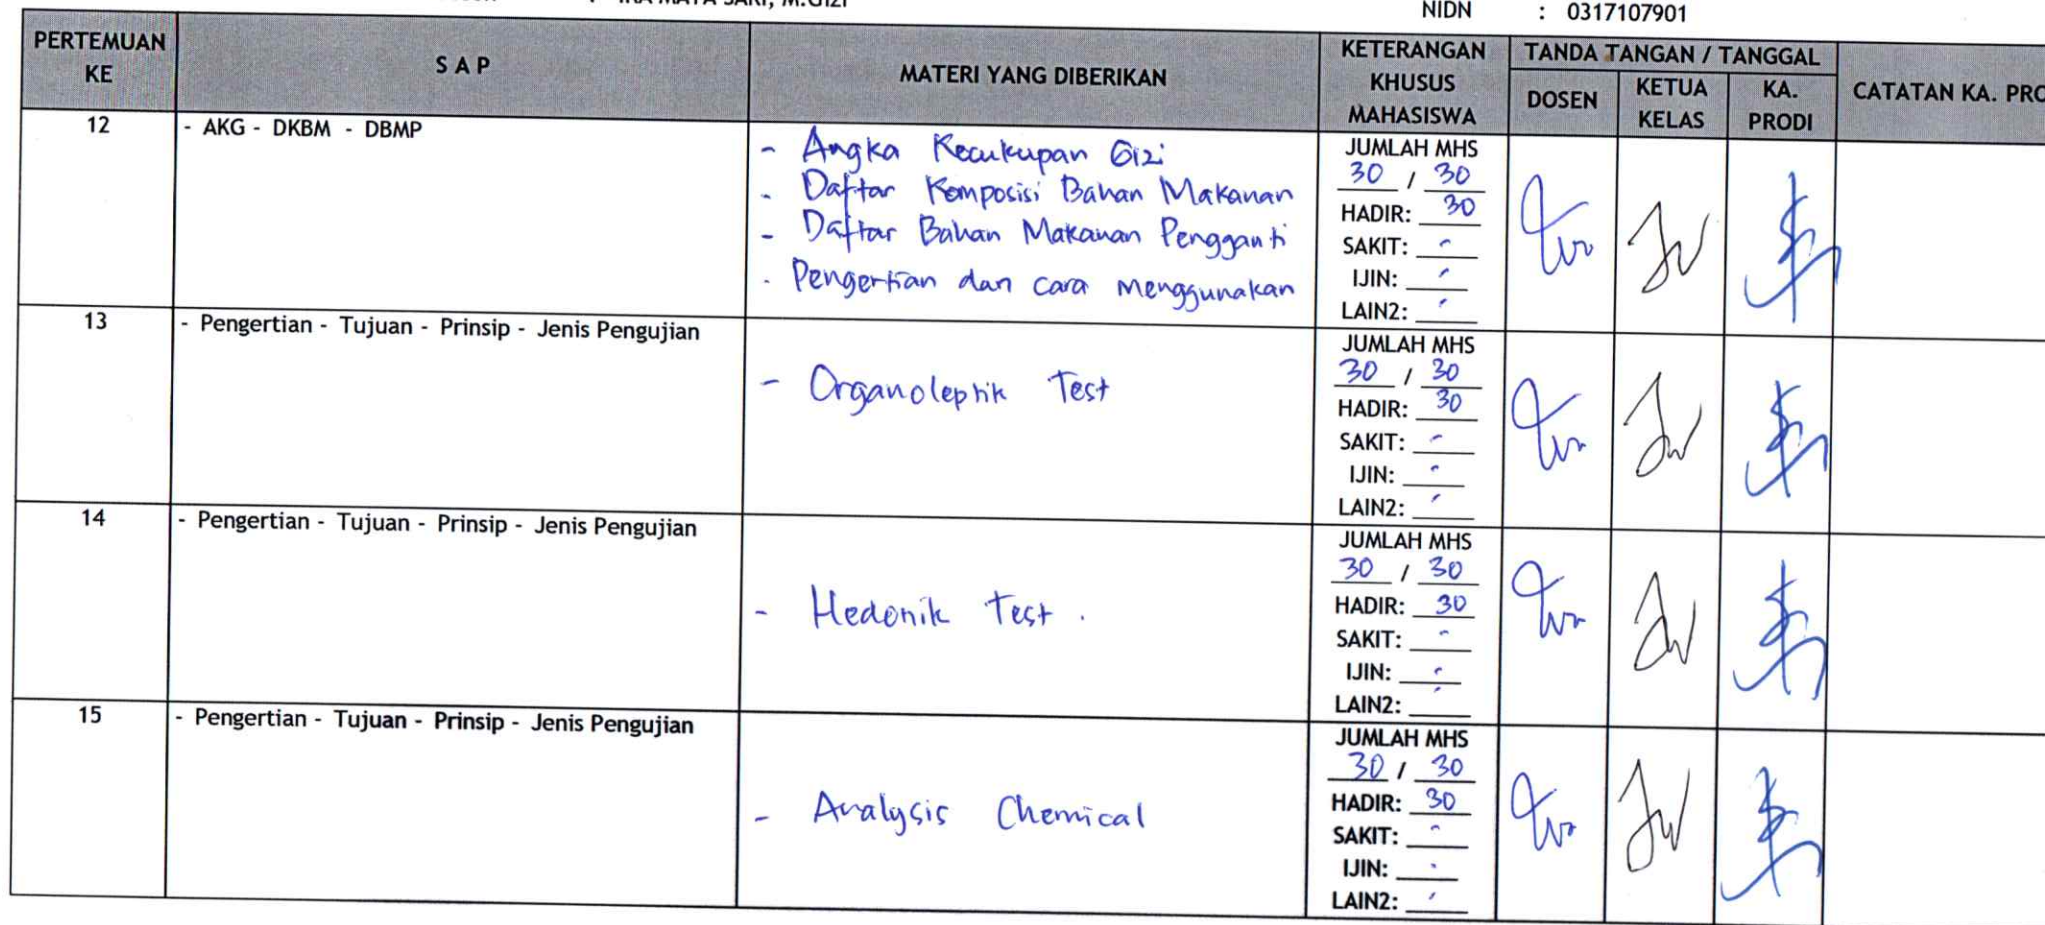 NIDN : 0317107901
PERTEMUAN KE
S A P
MATERI YANG DIBERIKAN
KETERANGAN KHUSUS MAHASISWA
TANDA TANGAN / TANGGAL
DOSEN
KETUA KELAS
KA. PRODI
CATATAN KA. PRO
12
- AKG - DKBM - DBMP
- Angka Kecukupan Gizi
- Daftar Komposisi Bahan Makanan
- Daftar Bahan Makanan Pengganti
- Pengertian dan cara menggunakan
JUMLAH MHS
30 / 30
HADIR: 30
SAKIT: -
IJIN: -
LAIN2: -
13
- Pengertian - Tujuan - Prinsip - Jenis Pengujian
- Organoleptik Test
JUMLAH MHS
30 / 30
HADIR: 30
SAKIT: -
IJIN: -
LAIN2: -
14
- Pengertian - Tujuan - Prinsip - Jenis Pengujian
- Hedonik Test .
JUMLAH MHS
30 / 30
HADIR: 30
SAKIT: -
IJIN: -
LAIN2: -
15
- Pengertian - Tujuan - Prinsip - Jenis Pengujian
- Analysis Chemical
JUMLAH MHS
30 / 30
HADIR: 30
SAKIT: -
IJIN: -
LAIN2: -